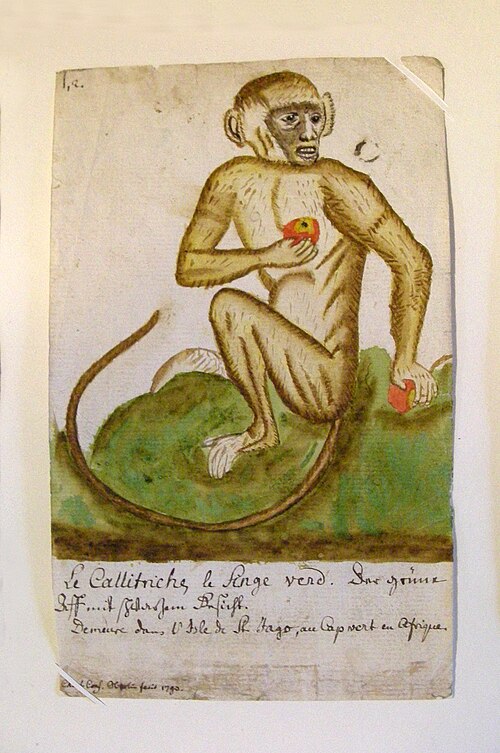 1,2.
Le Callitriche, le Singe verd. Der grüne
Aff mit schwarzem Gesicht.
Demeure dans l'Isle de St. Jago, au Cap vert en Afrique.
fecit 1790.